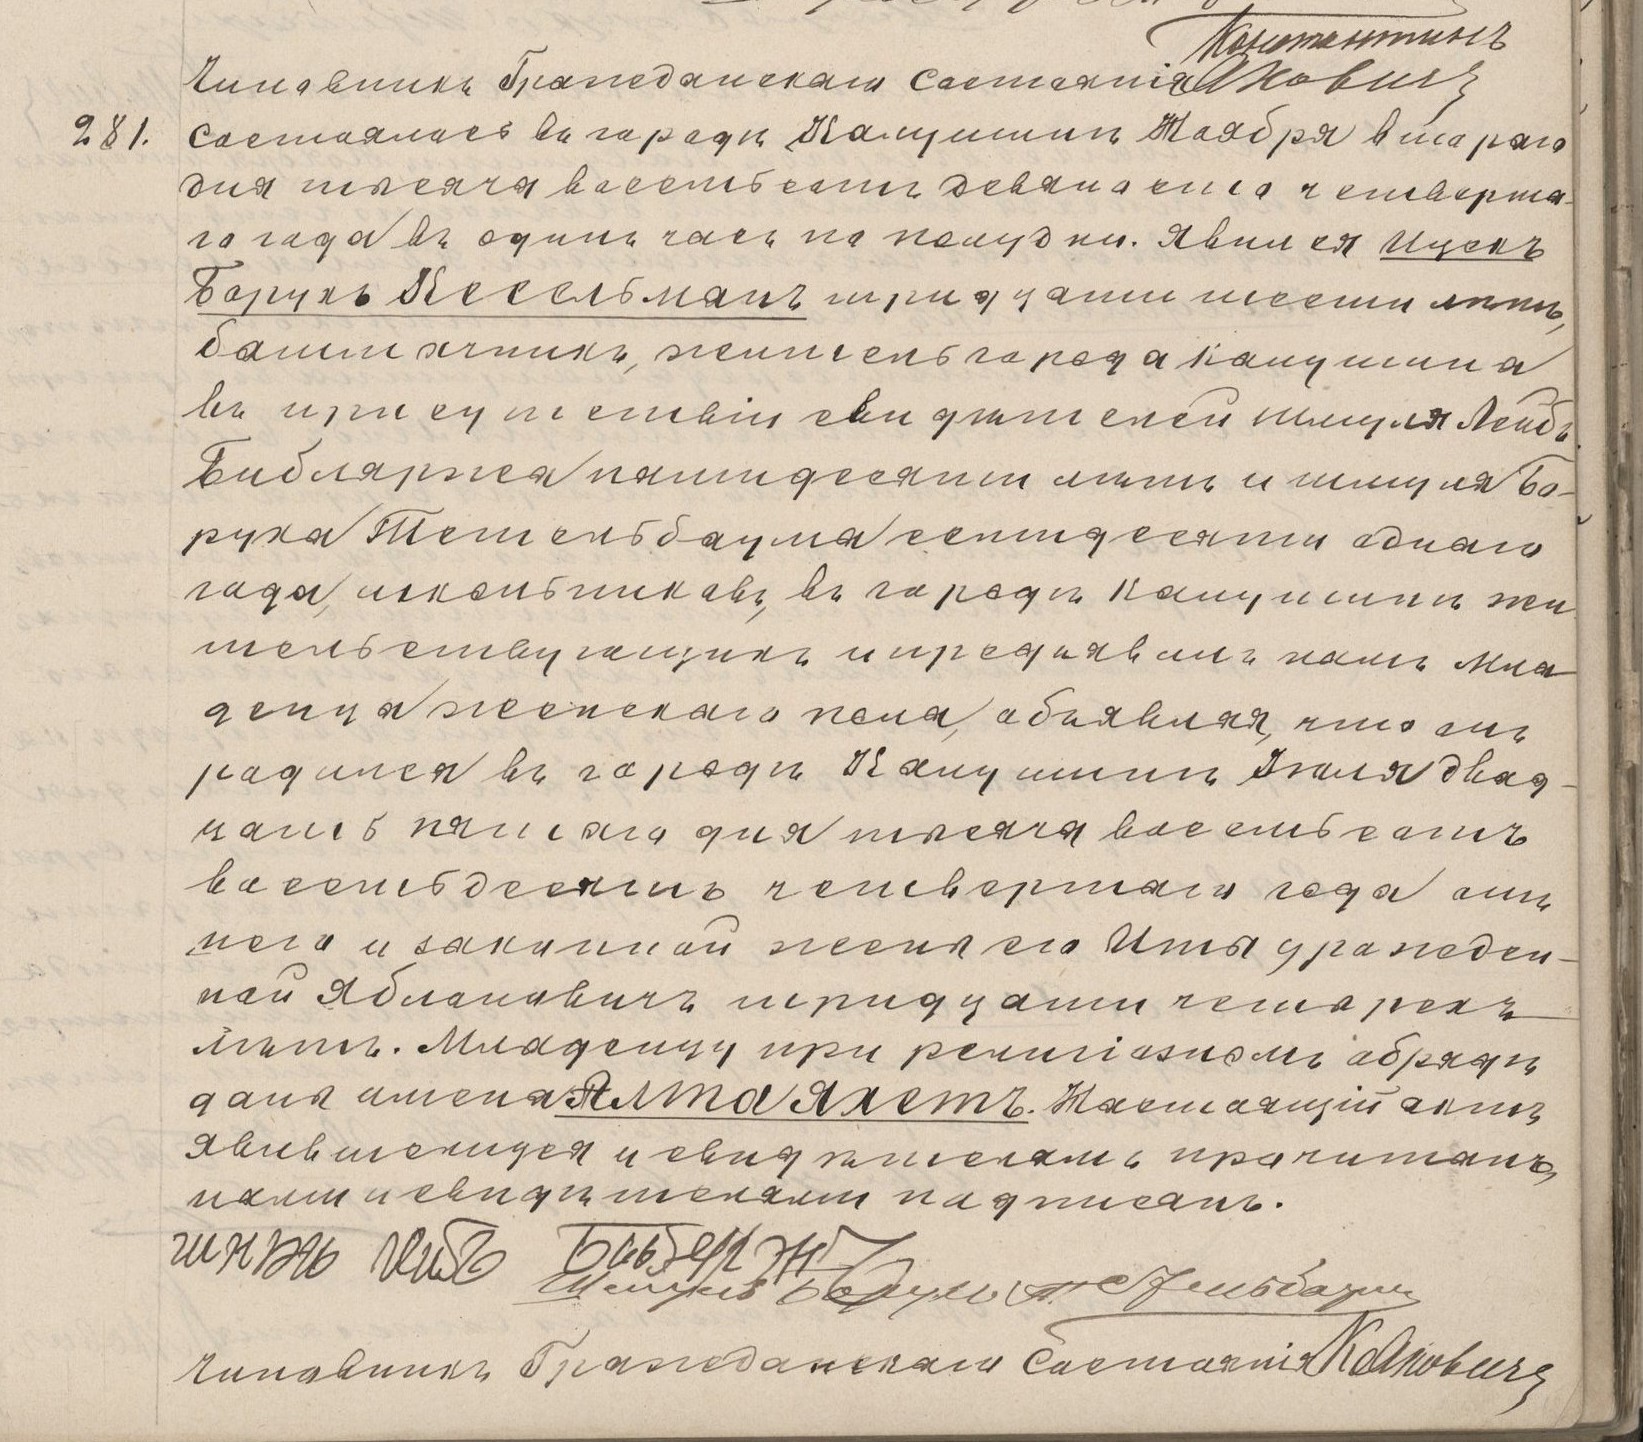 Константинъ
Чиновникъ Гражданскаго Состоянія Яковичъ
281. Состоялось въ городѣ Калушинѣ Ноября втораго
дня тысяча восемьсотъ девяносто четверта-
го года въ одинъ часъ по полудни. Явился Ицекъ
Борухъ Кесельманъ тридцати шести лѣтъ,
башмачникъ, житель города Калушина
въ присутствіи свидѣтелей Шмуля Лейбъ
Библяржа пятидесяти лѣтъ и Шмуля Бо-
руха Тетельбаума семидесяти одного
года, школьниковъ, въ городѣ Калушинѣ жи
тельствующихъ и предъявилъ намъ мла-
денца женскаго пола, объявляя, что онъ
родился въ городѣ Калушинѣ Іюля двад-
цать пятаго дня тысяча восемьсотъ
восемьдесятъ четвертаго года отъ
него и законной жены его Иты урожден-
ной Яблоновичъ тридцати четырехъ
лѣтъ. Младенцу при религіозномъ обрядѣ
даны имена Алта Яхетъ. Настоящій актъ
явившемуся и свидѣтелямъ прочитанъ,
нами и свидѣтелями подписанъ.
Шмуль Борухъ Тетельбаумъ
Чиновникъ Гражданскаго Состоянія К Яковичъ